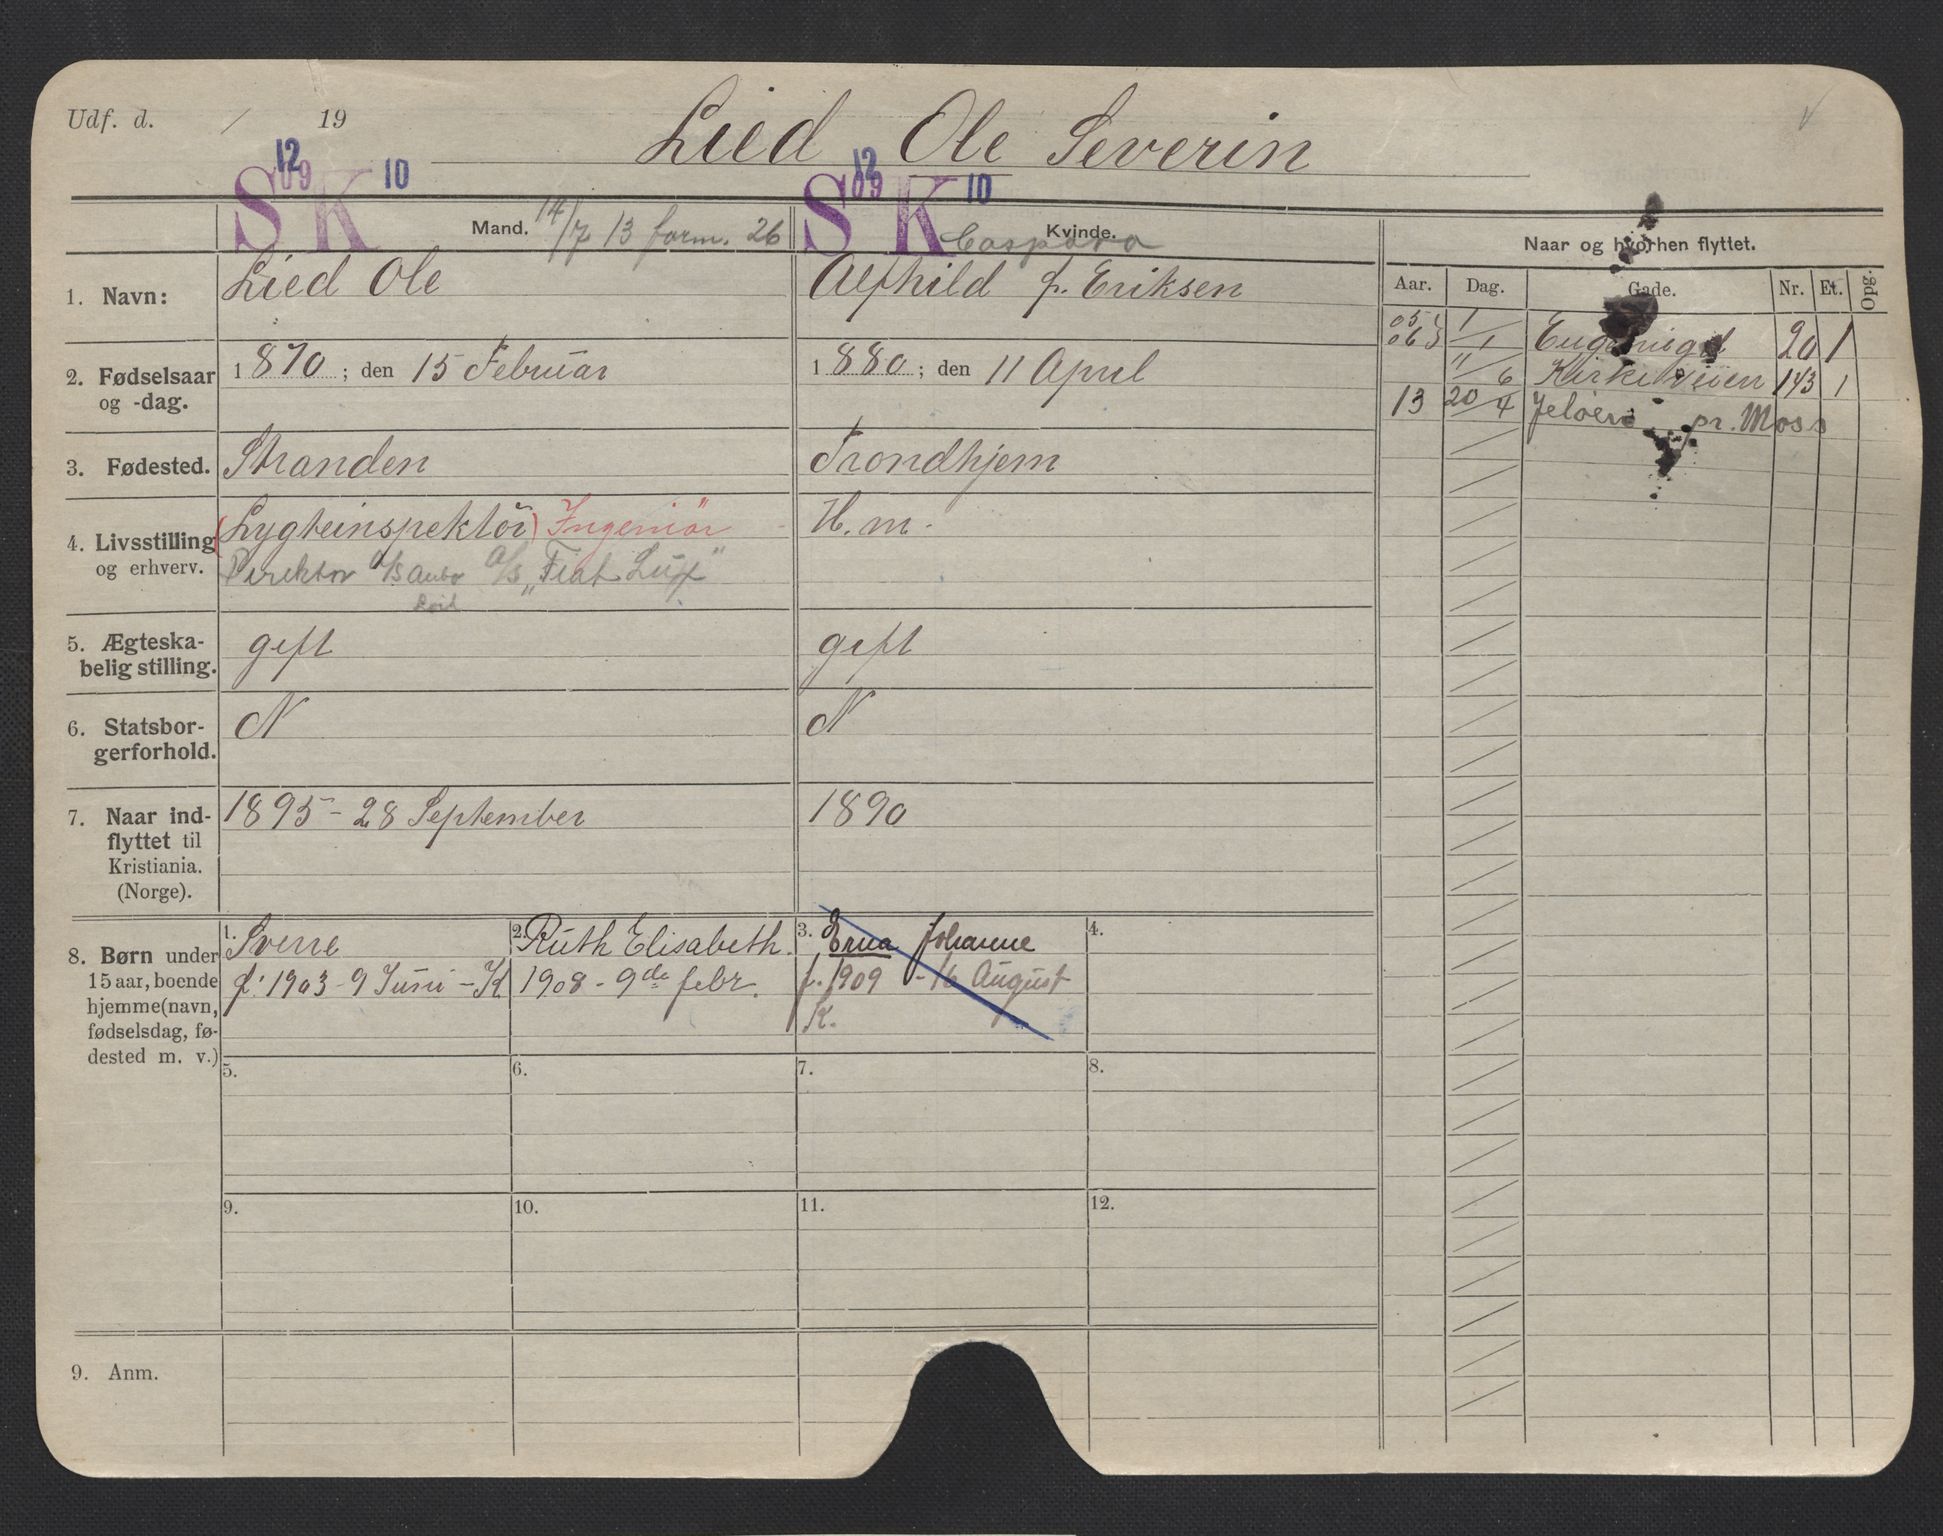 Udf. d. / 19
Lied Ole Severin
S K 12 09 10
S K 12 09 10
Mand. 14/7 13 form. 26
Kvinde.
Caspara
Naar og hvorhen flyttet.
Aar. Dag. Gade. Nr. Et. Opg.
1. Navn:
Lied Ole
Alfhild f. Eriksen
2. Fødselsaar og -dag.
1870; den 15 Februar
1880; den 11 April
05 1/1
06 Eugeniesgd 20 1
11/6 Kirkeveien 143 1
13 20/4 Jeløen pr. Moss
3. Fødested.
Stranden
Trondhjem
4. Livsstilling og erhverv.
(Lygteinspektör) Ingeniör
Direktor A/S Auto A/S "Fiat Lux"
H.m.
5. Ægteska-
belig stilling.
gift
gift
6. Statsbor-
gerforhold.
N
N
7. Naar ind-
flyttet til
Kristiania.
(Norge).
1895 - 28 September
1890
8. Børn under
15 aar, boende
hjemme (navn,
fødselsdag, fø-
dested m. v.)
1. Sverre
f. 1903 - 9 Juni - K
2. Ruth Elisabeth.
1908 - 9de febr.
3. Erna Johanne
f. 1909 - 16 August
K.
4.
5.
6.
7.
8.
9.
10.
11.
12.
9. Anm.